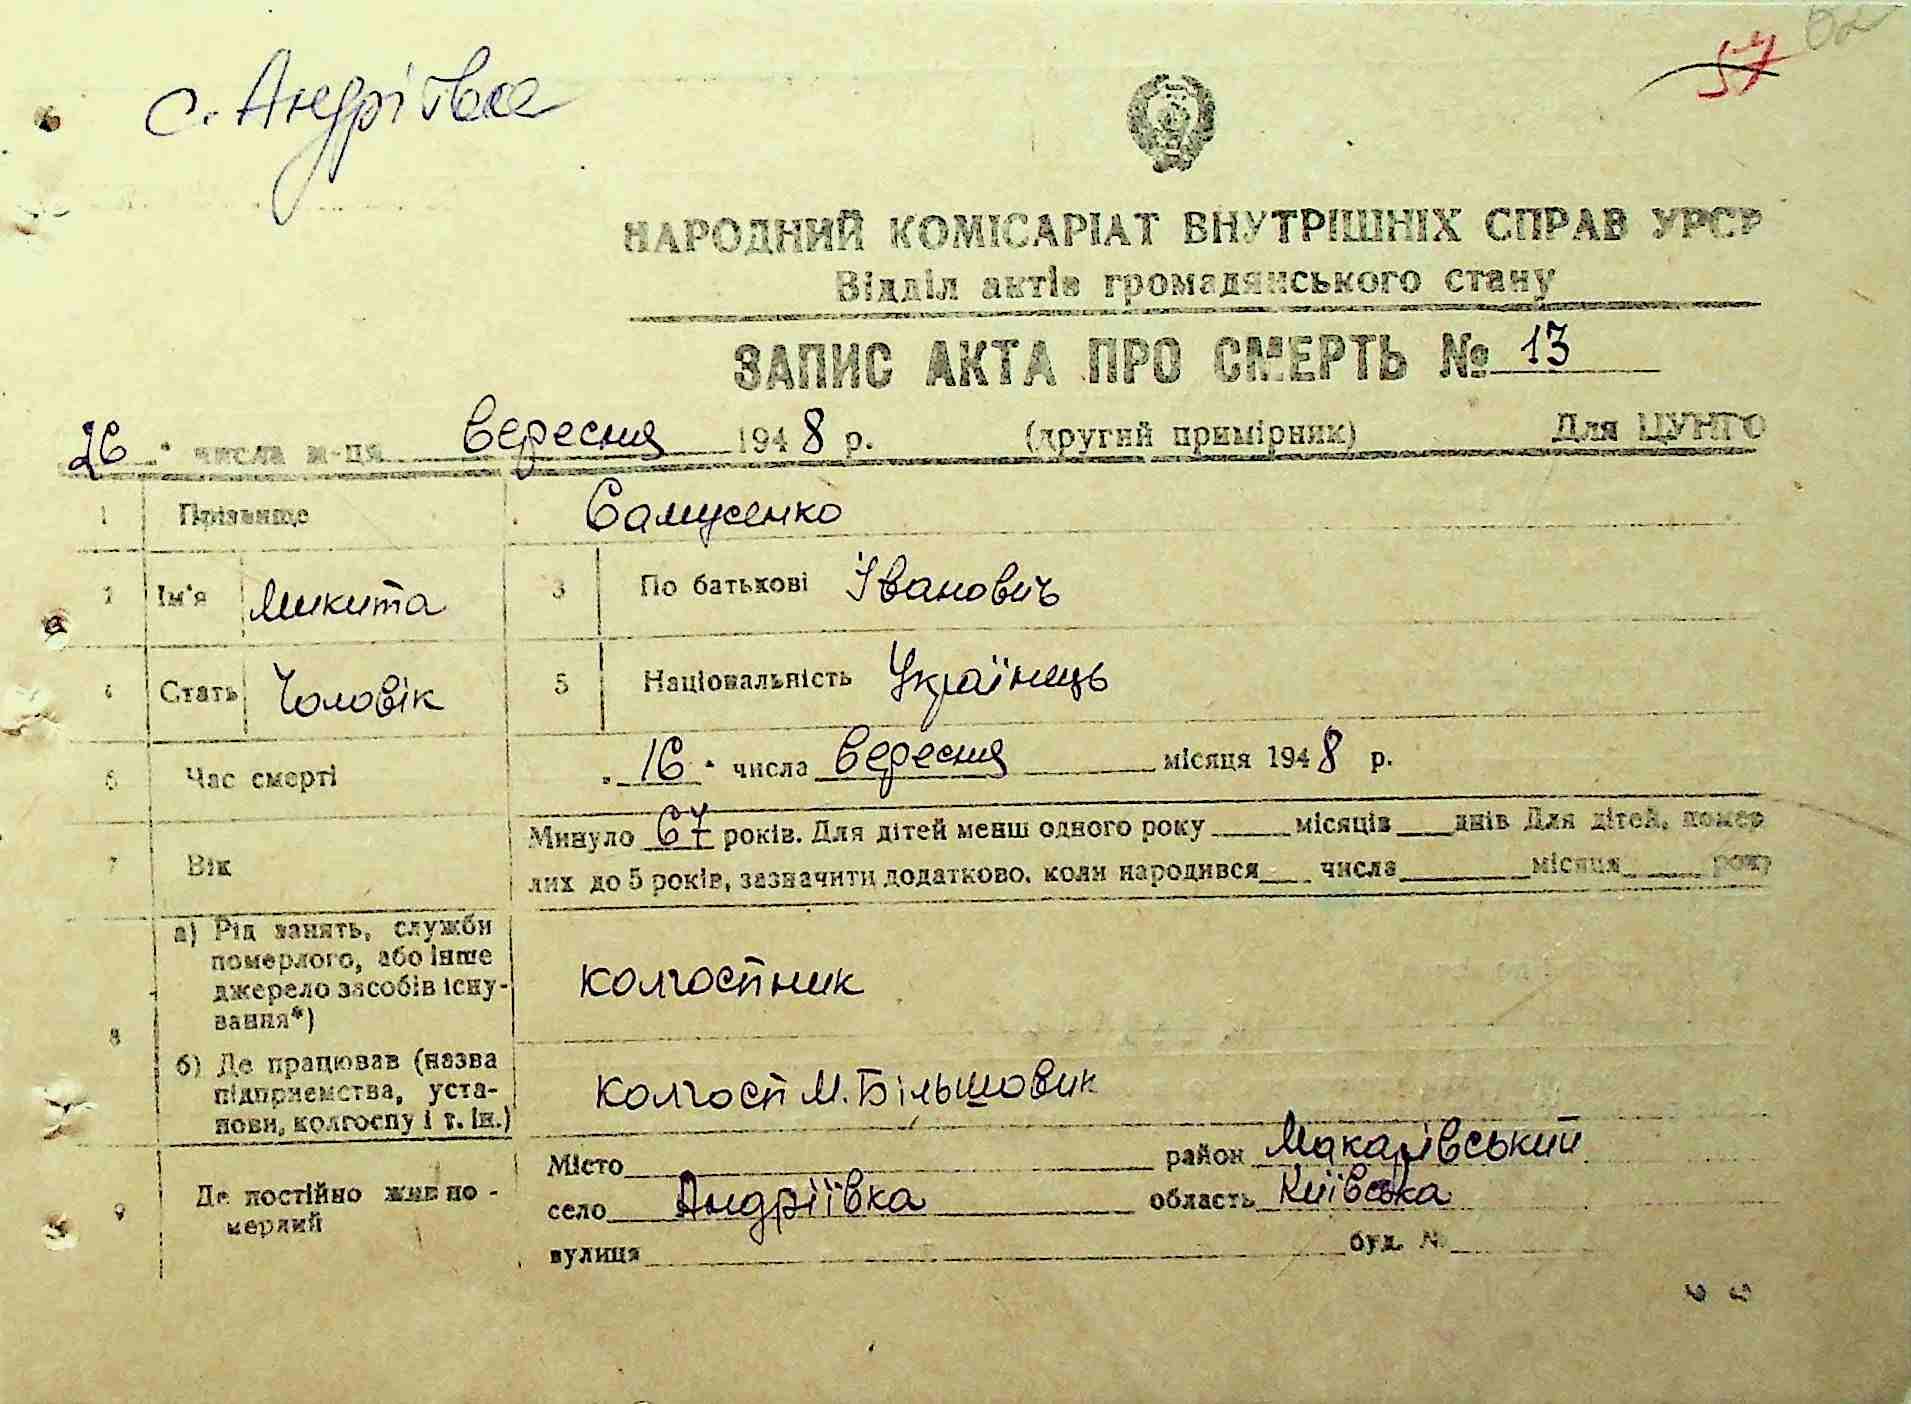 с. Андріївка
57 62
НАРОДНИЙ КОМІСАРІАТ ВНУТРІШНІХ СПРАВ УРСР
Відділ актів громадянського стану
ЗАПИС АКТА ПРО СМЕРТЬ № 13
26 " числа м-ця вересня 1948 р. (другий примірник) Для ЦУНГО
1 Прізвище Самусенко
2 Ім'я Микита 3 По батькові Іванович
4 Стать Чоловік 5 Національність Українець
6 Час смерті „ 16 " числа вересня місяця 1948 р.
7 Вік Минуло 67 років. Для дітей менш одного року місяців днів Для дітей, помер
лих до 5 років, зазначити додатково, коли народився числа місяця року
8 а) Рід занять, служби
померлого, або інше
джерело засобів існу-
вання*)
колгоспник
б) Де працював (назва
підприємства, уста-
нови, колгоспу і т. ін.)
колгосп М. Більшовик
9 Де постійно жив по-
мерлий
Місто район Макарівський
село Андріївка область Київська
вулиця буд. №